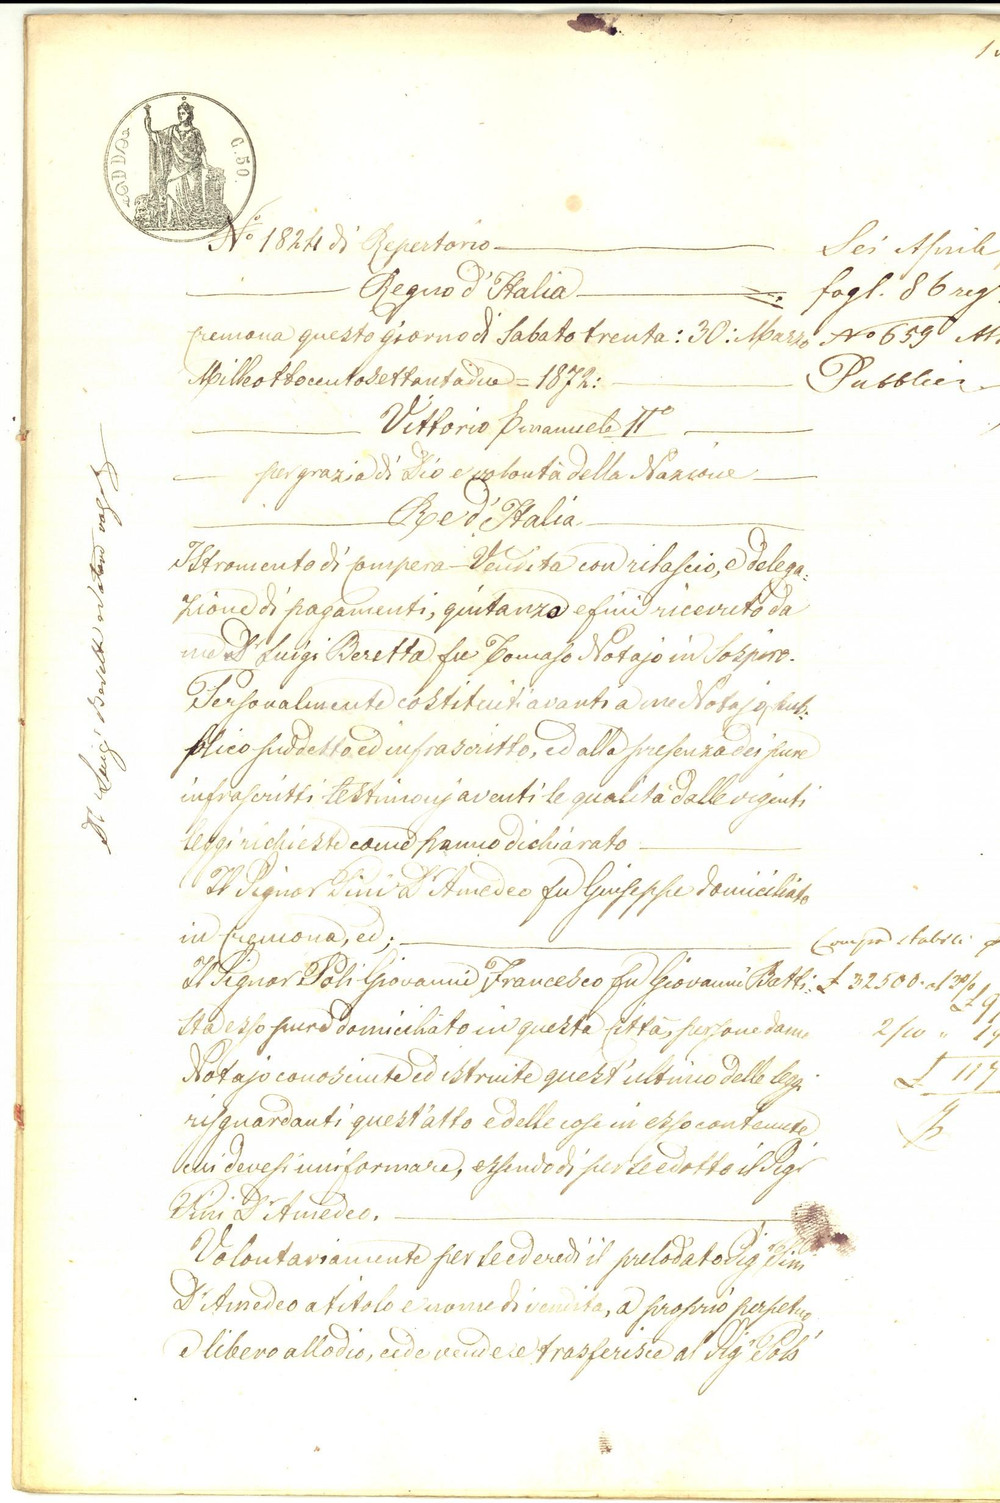 C. 50.
N.° 1824 di Repertorio
Regno d'Italia
Cremona questo giorno di Sabato trenta: 30: Marzo
Milleottocentosettantadue = 1872:
Vittorio Emanuele II°
per grazia di Dio e volontà della Nazione
Re d'Italia
Istromento di compera-Vendita con rilascio, e delega:
zione di pagamenti, quitanza e fini ricevuto da
me Dr Luigi Beretta fu Tomaso Notajo in Sospiro.
Personalmente costituiti avanti a me Notajo pub:
blico suddetto ed infrascritto, ed alla presenza dei pure
infrascritti testimonj aventi le qualità dalle vigenti
leggi richieste come hanno dichiarato
Il Signor Pini Dr Amedeo fu Giuseppe domiciliato
in Cremona, ed;
Il Signor Poli Giovanni Francesco fu Giovanni Batti:
sta esso pure domiciliato in questa città, persone da me
Notajo conosciute ed istruite quest'ultimo delle leggi
risguardanti quest'atto e delle cose in esso contenute
cui devesi uniformare, essendo di per se edotto il Sigr
Pini Dr Amedeo.
Volontariamente per se ed eredi il prelodato Sigr Pini
Dr Amedeo a titolo e nome di vendita, a proprio perpetuo
e libero allodio, cede vende e trasferisce al Sigr Poli
Sei Aprile
fogl. 86 reg.
N° 659
Pubblici
Compra stabili
£ 32500.
2/10 " 19
£ 117
Dr Luigi